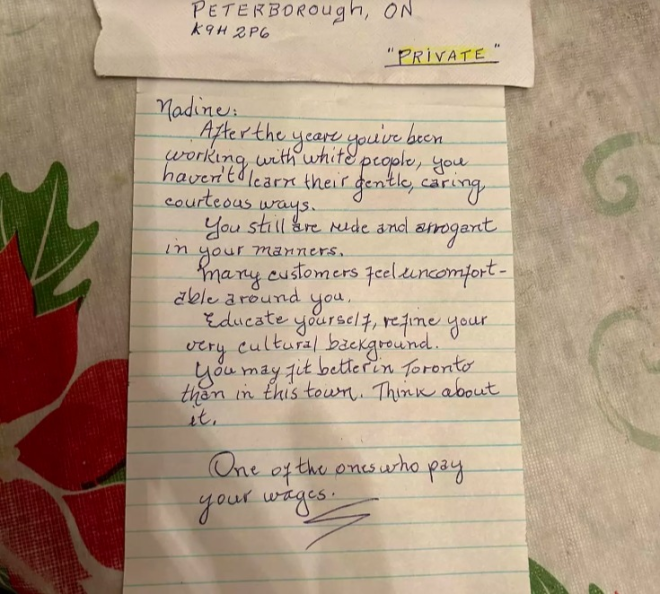 PETERBOROUGH, ON
K9H 2P6
"PRIVATE"
Nadine:
After the years you've been
working with white people, you
haven't learn their gentle, caring
courteous ways.
You still are rude and arrogant
in your manners.
Many customers feel uncomfort-
able around you.
Educate yourself, refine your
very cultural background.
You may fit better in Toronto
than in this town. Think about
it.
One of the ones who pay
your wages.